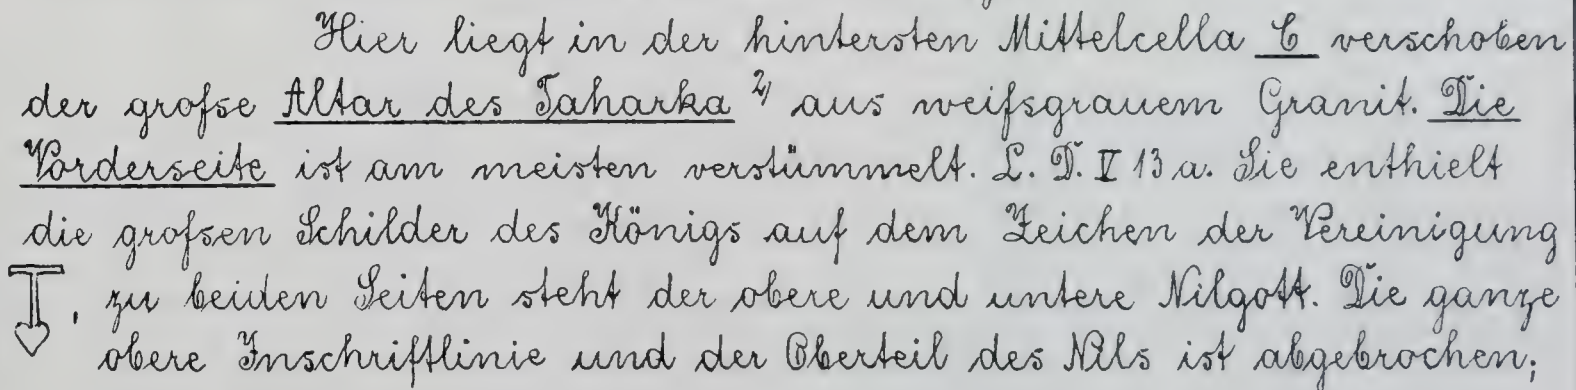 Hier liegt in der hintersten Mittelcella C verschoben
der grofse Altar des Taharka 2) aus weifsgrauem Granit. Die
Vorderseite ist am meisten verstümmelt. L. D. V 13 a. Sie enthielt
die grofsen Schilder des Königs auf dem Zeichen der Vereinigung
, zu beiden Seiten steht der obere und untere Nilgott. Die ganze
obere Inschriftlinie und der Oberteil des Nils ist abgebrochen;